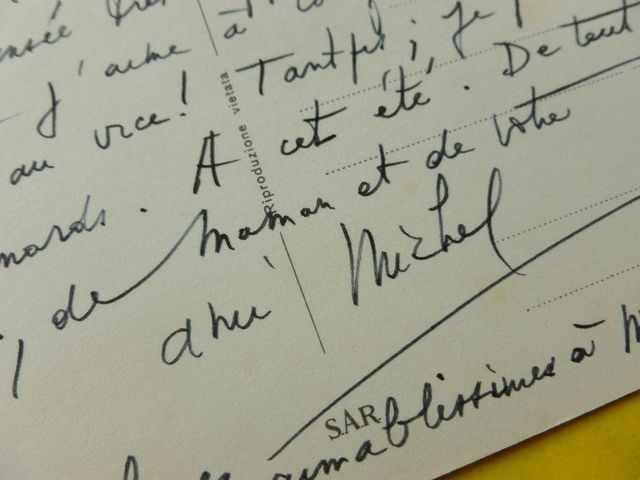 J'aime à
au vice! Tant pis; je
A cet été. De tout
de maman et de votre
ami Michel
Riproduzione vietata
SAR
aimablissimes à